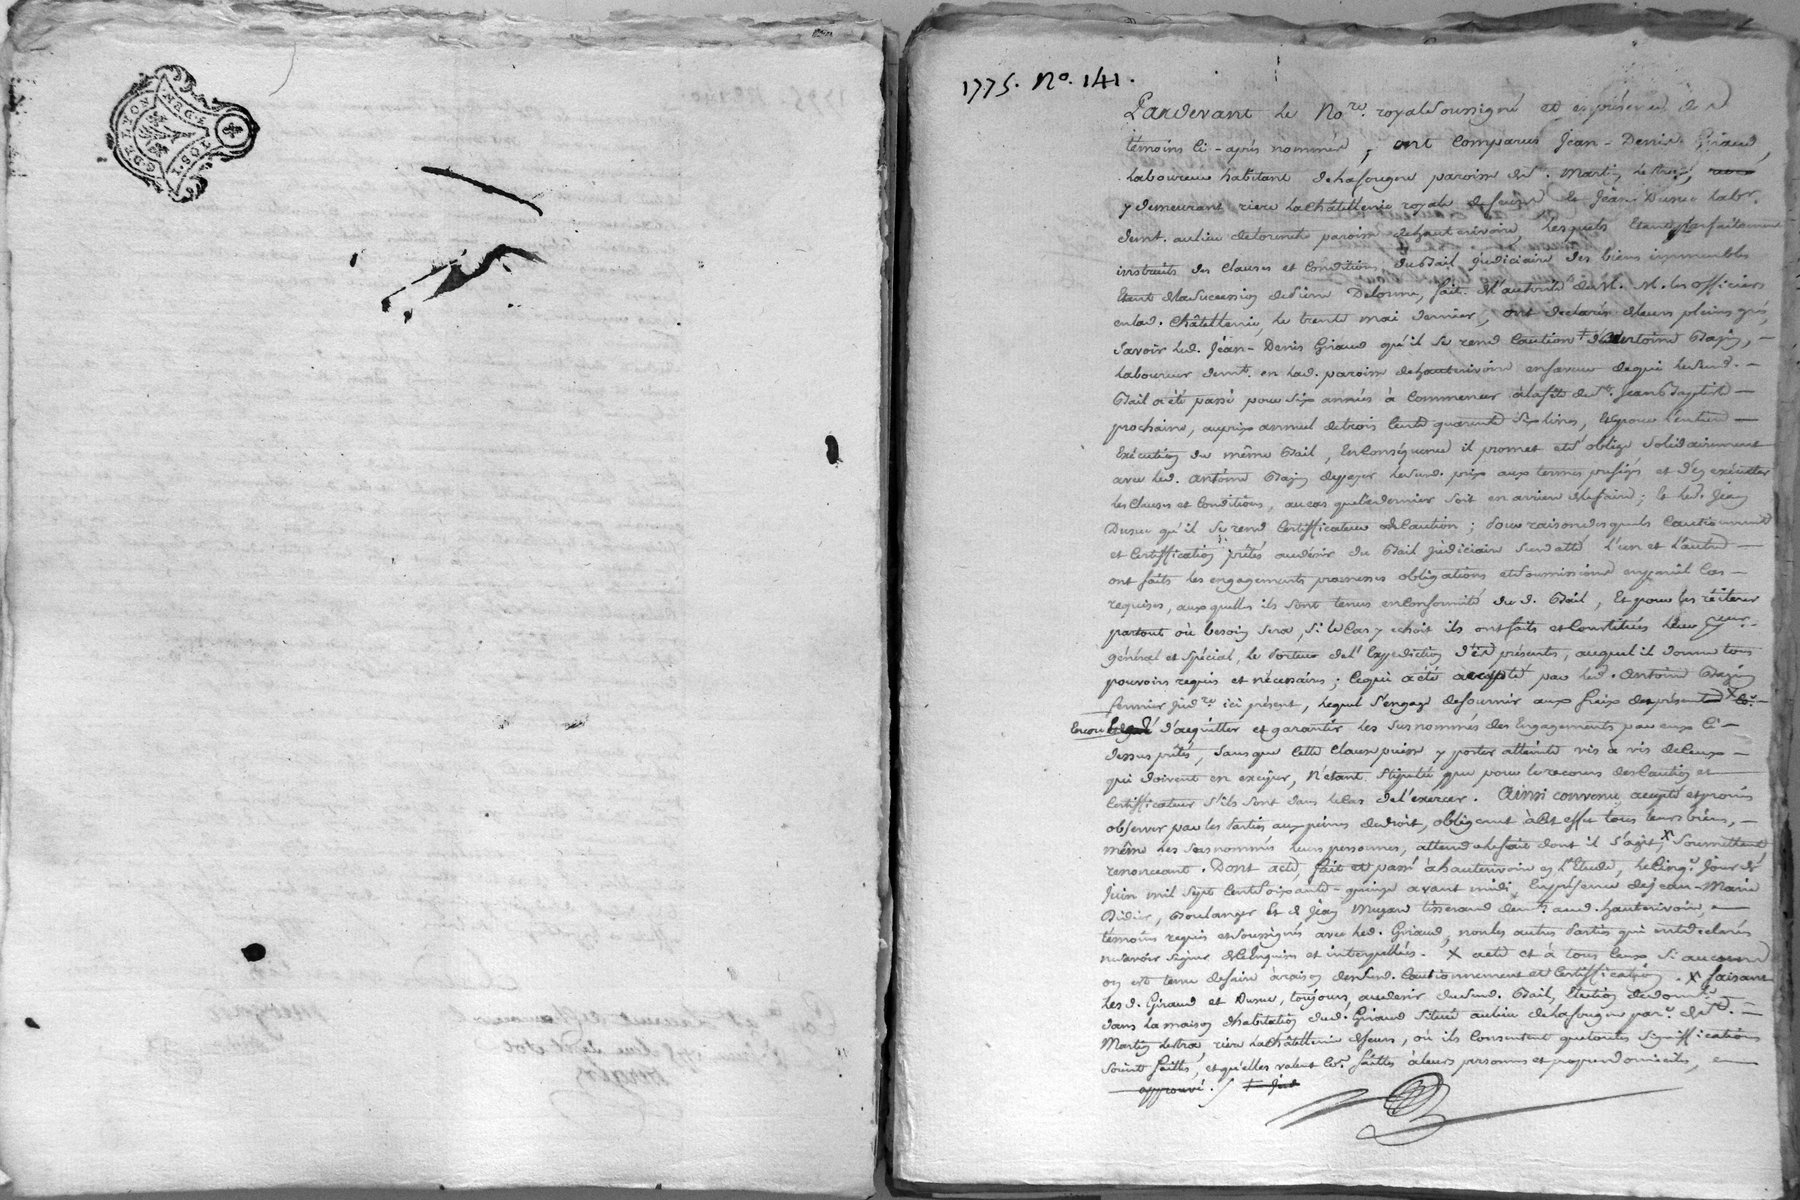 G. DE LYON
1. SOL 2. DEN
1775. No. 141.
Pardevant le No.re royal soussigné et en présence des
témoins ci-après nommés, ont comparus Jean-Denis Giraud,
laboureur habitant de la fouge paroisse de St. Martin lestra,
y demeurant riere la Châtellenie royale de feurs et Jean Dusuc lab.r
demt. au lieu de paroisse de hauterivoire, lesquels étant parfaitement
instruits des clauses et conditions du Bail judiciaire des biens immeubles
étant de la succession de Delorme, fait de l'autorité de M. M. les officiers
en lad. Châtellenie, le trente mai dernier, ont déclarés de leurs pleins grés,
Savoir led. Jean-Denis Giraud qu'il se rend caution d'Antoine Bazin,
laboureur demt. en lad. paroisse de hauterivoire en faveur de qui le susd.
Bail a été passé pour six années à commencer à la fête de St. Jean Baptiste
prochaine, au prix annuel de trois cents quarante six livres, et pour l'entiere
exécution du même Bail, en conséquence il promet et s'oblige solidairement
avec led. Antoine Bazin de payer le susd. prix aux termes préfigés et d'en exécuter
les clauses et conditions, au cas que ce dernier soit en arriere de le faire; et led. Jean
Dusuc qu'il se rend certifficateur de la caution; pour raison desquels cautionnement
et certiffication prêtés au désir du Bail judiciaire susdatté l'un et l'autre
ont faits les engagements promesses obligations et soumissions en pareil cas
requises, auxquelles ils sont tenus en conformité du d. Bail, et pour les réiterer
partout où besoin sera, si le cas y echoit ils ont faits et constitués leur
général et spécial, le porteur de l'expedition d'es présentes, auquel il donne tous
pouvoirs requis et nécessaires; ce qui a été accepté par led. Antoine Bazin
fermier jud.re ici présent, lequel s'engage de fournir aux fraix des présentes X
encore d'acquitter et garantir les susnommés des engagements par eux ci-
dessus prêtés, sans que cette clause puisse y porter atteinte vis à vis de ceux
qui doivent en exciper, n'étant stipulée que pour le recours des caution et
certifficateur s'ils sont dans le cas de l'exercer. Ainsi convenu, accepté et promis
observer par les parties aux peines de droit, obligeant à cet effet tous leurs biens,
même les susnommés leurs personnes, attendu le fait dont il s'agit, X soumettant
renonceant. Dont acte, fait et passé à hauterivoire en l'Etude, le cinq.e jour de
Juin mil sept cents soixante-quinze avant midi, en présence de jean-Marie
Didier, Boulanger et de Jean Muzard tisserand demt. aud. hauterivoire,
témoins requis et soussignés avec led. Giraud, non les autres parties qui ont déclarés
ne savoir signer de ce enquises et interpellées. X acte et à tous ceux si aucun
on est tenu de faire à raison des susd. cautionnement et certiffication. X faisant
les d. Giraud et Dusuc, toujours, au desir du susd. Bail, élection de dom.le
dans la maison d'habitation du d. Giraud située au lieu de la fouge par.e de St.
Martin lestra riere la Châtellenie de feurs, où ils consentent que toutes signiffications
soient faittes, et qu'elles valent co.e faittes à leurs personnes et propres domiciles,
approuvé.